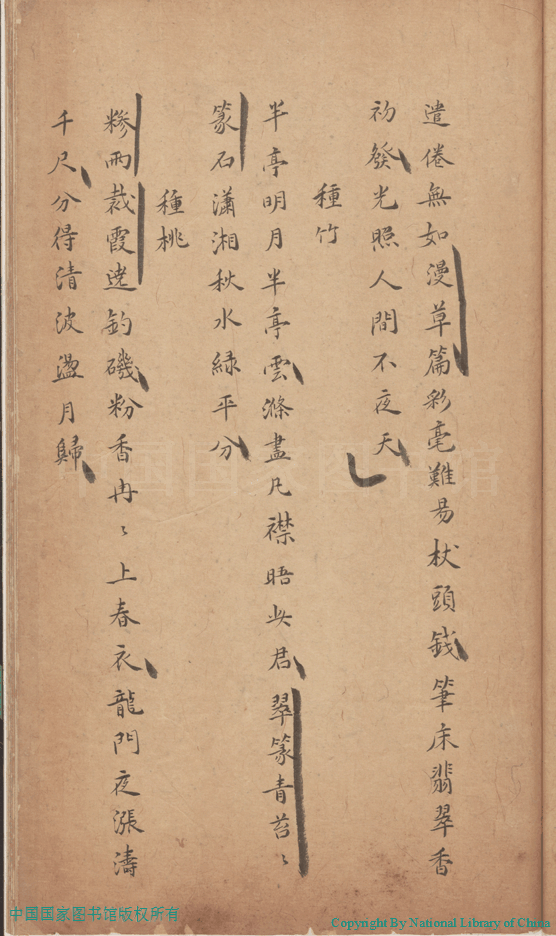 遣倦無如漫草篇彩毫難易杖頭錢筆床翡翠香
初發光照人間不夜天
種竹
半亭明月半亭雲滌盡凡襟晤此君翠篆青苔〻
篆石瀟湘秋水綠平分
種桃
糝雨裁霞遶釣磯粉香冉〻上春衣龍門夜漲濤
千尺分得清波盪月歸
中国国家图书馆
中国国家图书馆版权所有
Copyright By National Library of China